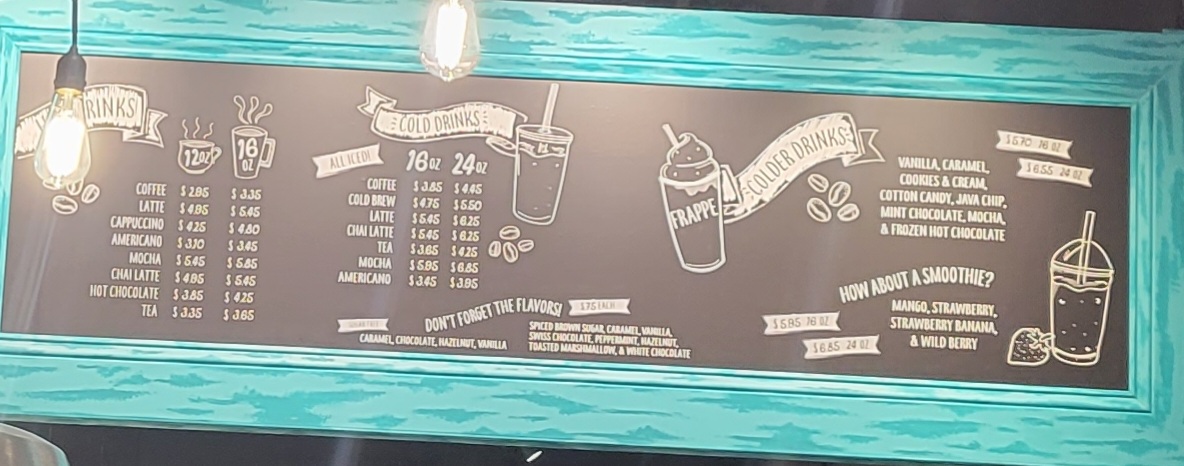 RINKS
12oz
16 OZ
COFFEE $2.95 $3.35
LATTE $4.95 $5.45
CAPPUCCINO $4.25 $4.80
AMERICANO $3.10 $3.45
MOCHA $5.45 $5.85
CHAI LATTE $4.95 $5.45
HOT CHOCOLATE $3.85 $4.25
TEA $3.35 $3.65
COLD DRINKS
ALL ICED!
16oz 24oz
COFFEE $3.85 $4.45
COLD BREW $4.75 $5.50
LATTE $5.45 $6.25
CHAI LATTE $5.45 $6.25
TEA $3.65 $4.25
MOCHA $5.95 $6.85
AMERICANO $3.45 $3.95
DON'T FORGET THE FLAVORS! $.75 EACH
SUGAR FREE
CARAMEL, CHOCOLATE, HAZELNUT, VANILLA
SPICED BROWN SUGAR, CARAMEL, VANILLA,
SWISS CHOCOLATE, PEPPERMINT, HAZELNUT,
TOASTED MARSHMALLOW, & WHITE CHOCOLATE
FRAPPE
COLDER DRINKS
VANILLA, CARAMEL,
COOKIES & CREAM,
COTTON CANDY, JAVA CHIP,
MINT CHOCOLATE, MOCHA,
& FROZEN HOT CHOCOLATE
$5.70 16 OZ
$6.55 24 OZ
HOW ABOUT A SMOOTHIE?
MANGO, STRAWBERRY,
STRAWBERRY BANANA,
& WILD BERRY
$5.95 16 OZ
$6.85 24 OZ